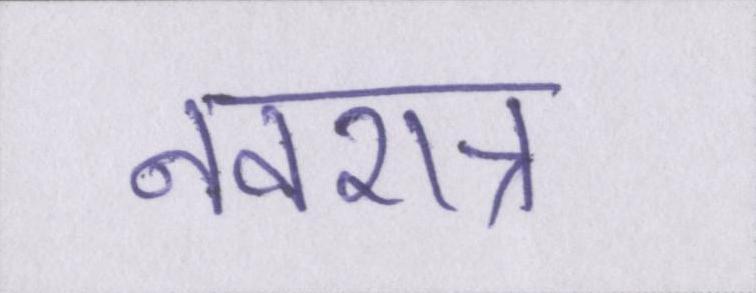 नवरात्र